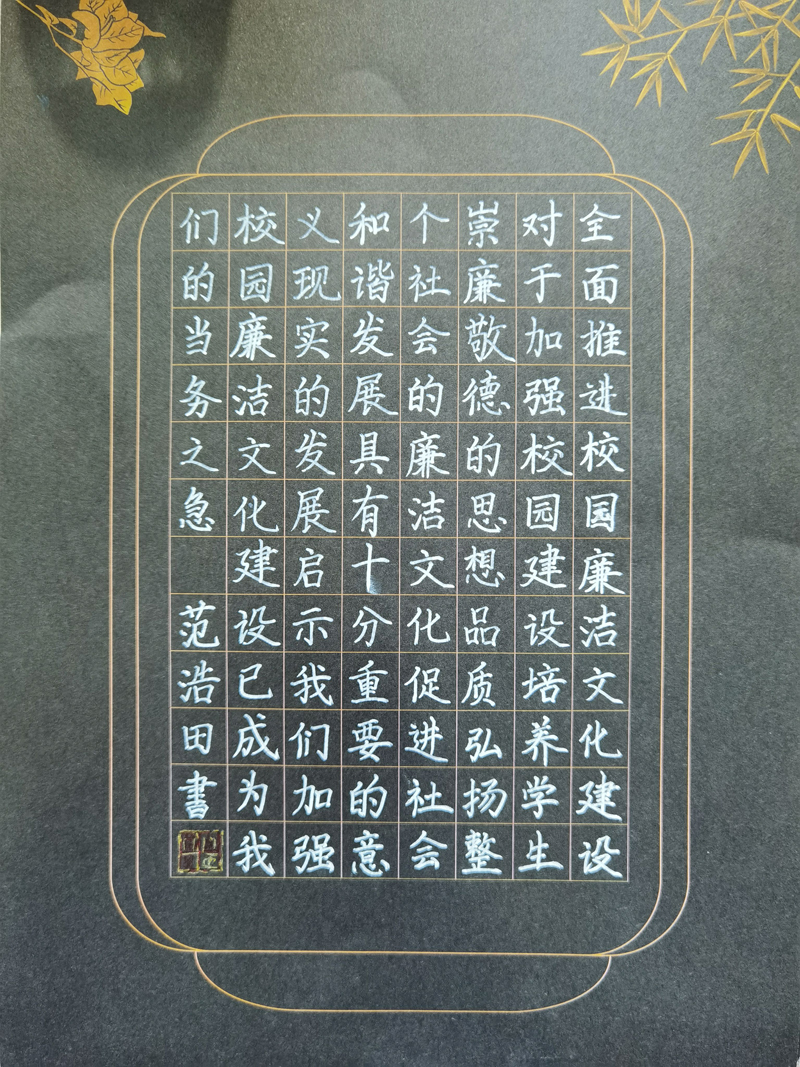 全面推进校园廉洁文化建设
对于加强校园建设培养学生
崇廉敬德的思想品质弘扬整
个社会的廉洁文化促进社会
和谐发展具有十分重要的意
义现实的发展启示我们加强
校园廉洁文化建设已成为我
们的当务之急 范浩田書